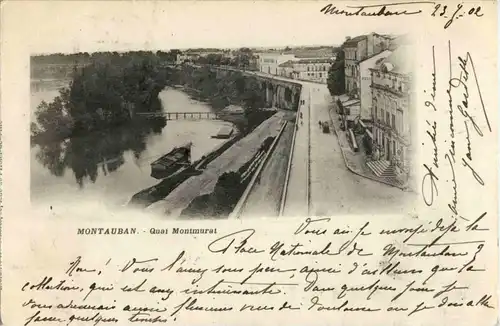 Montauban 23-7-02
MONTAUBAN. - Quai Montmurat
Vous ai-je envoyé déjà la
Place Nationale de Montauban ?
Non ! Vous l'aurez sous peu, ainsi d'ailleurs que la
collection, qui est assez intéressante. Dans quelques jours je
vous enverrai aussi plusieurs vues de Toulouse où je dois aller
passer quelque temps !
Amitiés d'une